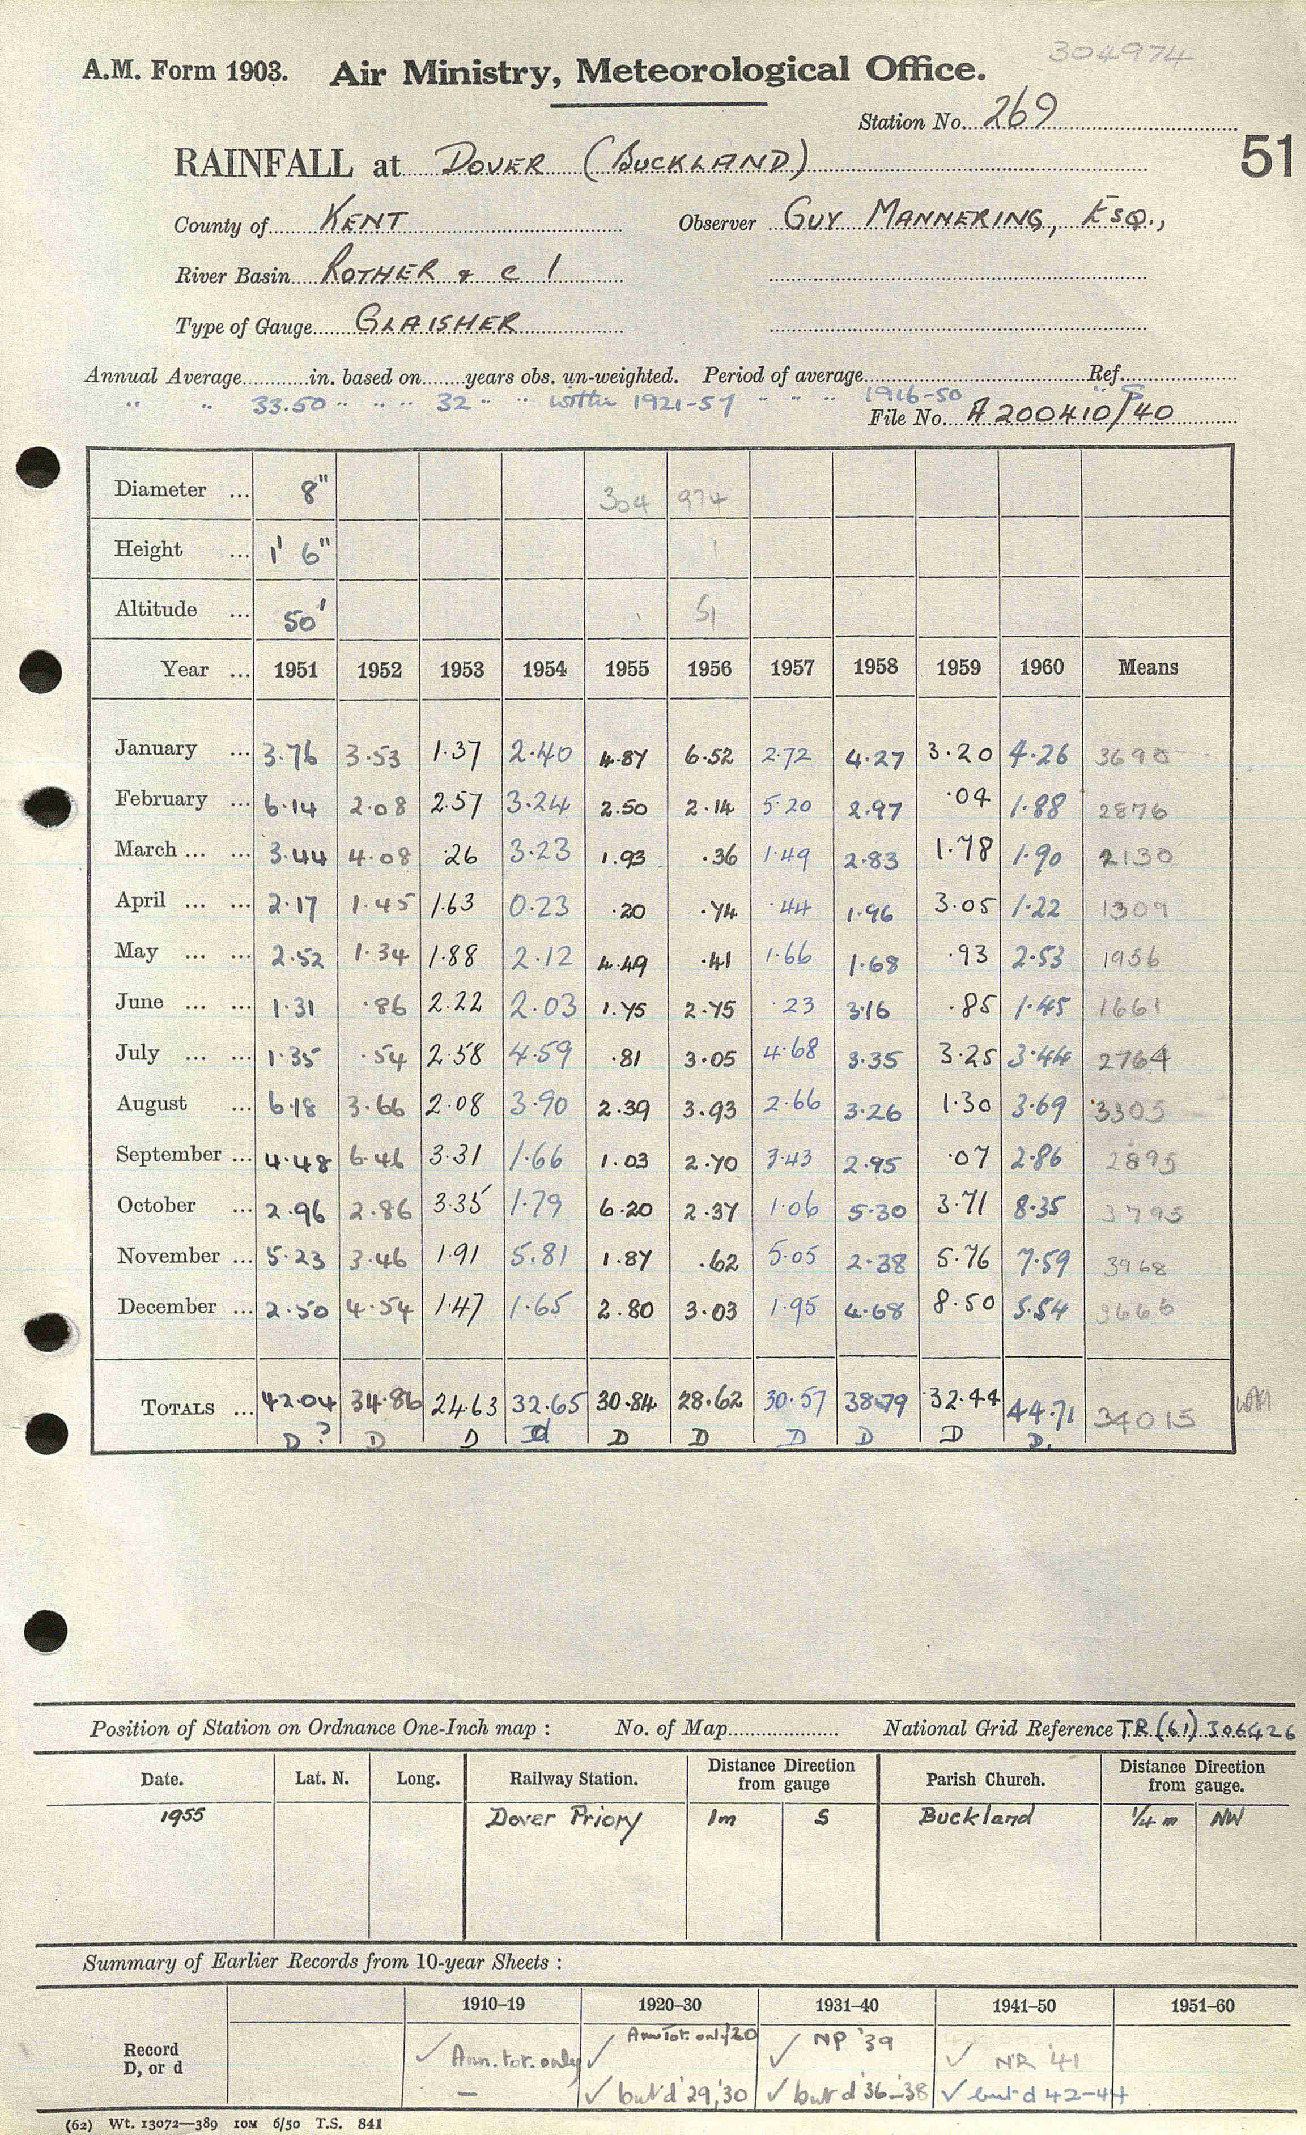 304974
A.M. Form 1903. Air Ministry, Meteorological Office.
Station No. 269
51
RAINFALL at DOVER (BUCKLAND)
County of KENT Observer GUY MANNERING, ESQ.,
River Basin ROTHER & C 1
Type of Gauge GLAISHER
Annual Average in. based on years obs. un-weighted. Period of average Ref.
" " 33.50 " " " 32 " " 1921-57 " " " 1916-50 " S
File No. A 200410/40
Diameter ... 8" 304 974
Height ... 1' 6" 1
Altitude ... 50' 51
Year ... 1951 1952 1953 1954 1955 1956 1957 1958 1959 1960 Means
January ... 3.76 3.53 1.37 2.40 4.87 6.52 2.72 4.27 3.20 4.26 3690
February ... 6.14 2.08 2.57 3.24 2.50 2.14 5.20 2.97 .04 1.88 2876
March ... ... 3.44 4.08 .26 3.23 1.93 .36 1.49 2.83 1.78 1.90 2130
April ... ... 2.17 1.45 1.63 0.23 .20 .74 .44 1.96 3.05 1.22 1309
May ... ... 2.52 1.34 1.88 2.12 4.49 .41 1.66 1.68 .93 2.53 1956
June ... ... 1.31 .86 2.22 2.03 1.75 2.75 .23 3.16 .85 1.45 1661
July ... ... 1.35 .54 2.58 4.59 .81 3.05 4.68 3.35 3.25 3.44 2764
August ... 6.18 3.66 2.08 3.90 2.39 3.93 2.66 3.26 1.30 3.69 3305
September ... 4.48 6.46 3.31 1.66 1.03 2.70 3.43 2.95 .07 2.86 2895
October ... 2.96 2.86 3.35 1.79 6.20 2.37 1.06 5.30 3.71 8.35 3795
November ... 5.23 3.46 1.91 5.81 1.87 .62 5.05 2.38 5.76 7.59 3968
December ... 2.50 4.54 1.47 1.65 2.80 3.03 1.95 4.68 8.50 5.54 3666
TOTALS ... 42.04 34.86 24.63 32.65 30.84 28.62 30.57 38.79 32.44 44.71 34015
D ? D D d D D D D D D.
Position of Station on Ordnance One-Inch map : No. of Map National Grid Reference TR (61) 306426
Date. Lat. N. Long. Railway Station. Distance Direction from gauge Parish Church. Distance Direction from gauge.
1955 Dover Priory 1m S Buckland ¼ m NW
Summary of Earlier Records from 10-year Sheets :
1910–19 1920–30 1931–40 1941–50 1951–60
Record D, or d
✓ Ann. tot. only ✓ Ann Tot. only '20 ✓ NP '39 ✓ NR '41
– ✓ but d '29,'30 ✓ but d '36–'38 ✓ but d 42–44
(62) Wt. 13072—389 10M 6/50 T.S. 841